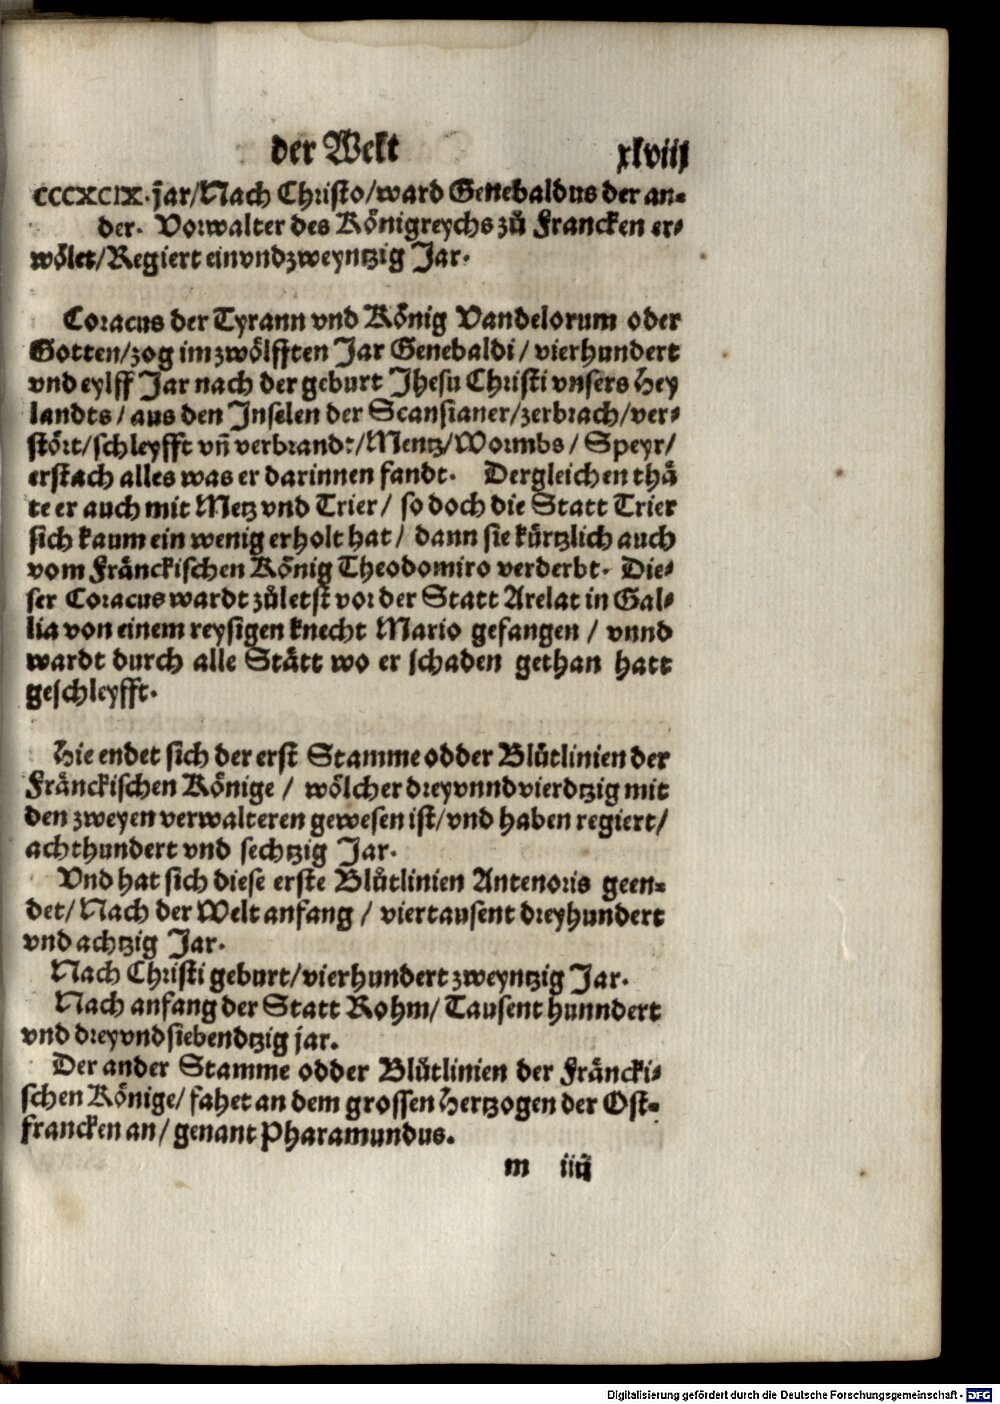 der Welt xlviij
CCCXCIX. jar/Nach Christo/ward Genebaldus der an⸗
der. Vorwalter des Königreychs zů Francken er⸗
wölet/Regiert einvndzweyntzig Jar.
Coracus der Tyrann vnd König Vandelorum oder
Gotten/zog im zwölfften Jar Genebaldi/ vierhundert
vnd eylff Jar nach der geburt Jhesu Christi vnsers Hey
landts/ aus den Jnselen der Scansianer/zerbrach/ver⸗
stört/schleyfft vñ verbrandt/Mentz/Wormbs/ Speyr/
erstach alles was er darinnen fandt. Dergleichen thä
te er auch mit Metz vnd Trier/ so doch die Statt Trier
sich kaum ein wenig erholt hat/ dann sie kürtzlich auch
vom Fränckischen König Theodomiro verderbt. Die⸗
ser Coracus wardt zůletst vor der Statt Arelat in Gal⸗
lia von einem reysigen knecht Mario gefangen/ vnnd
wardt durch alle Stätt wo er schaden gethan hatt
geschleyfft.
Hie endet sich der erst Stamme odder Blůtlinien der
Fränckischen Könige/ wölcher dreyvnndvierdtzig mit
den zweyen verwalteren gewesen ist/vnd haben regiert/
achthundert vnd sechtzig Jar.
Vnd hat sich diese erste Blůtlinien Antenoris geen⸗
det/ Nach der Welt anfang/ viertausent dreyhundert
vnd achtzig Jar.
Nach Christi geburt/vierhundert zweyntzig Jar.
Nach anfang der Statt Rohm/ Tausent hunndert
vnd dreyvndsiebendtzig jar.
Der ander Stamme odder Blůtlinien der Fräncki⸗
schen Könige/ fahet an dem grossen Hertzogen der Ost⸗
francken an/ genant Pharamundus.
m iiij
Digitalisierung gefördert durch die Deutsche Forschungsgemeinschaft - DFG